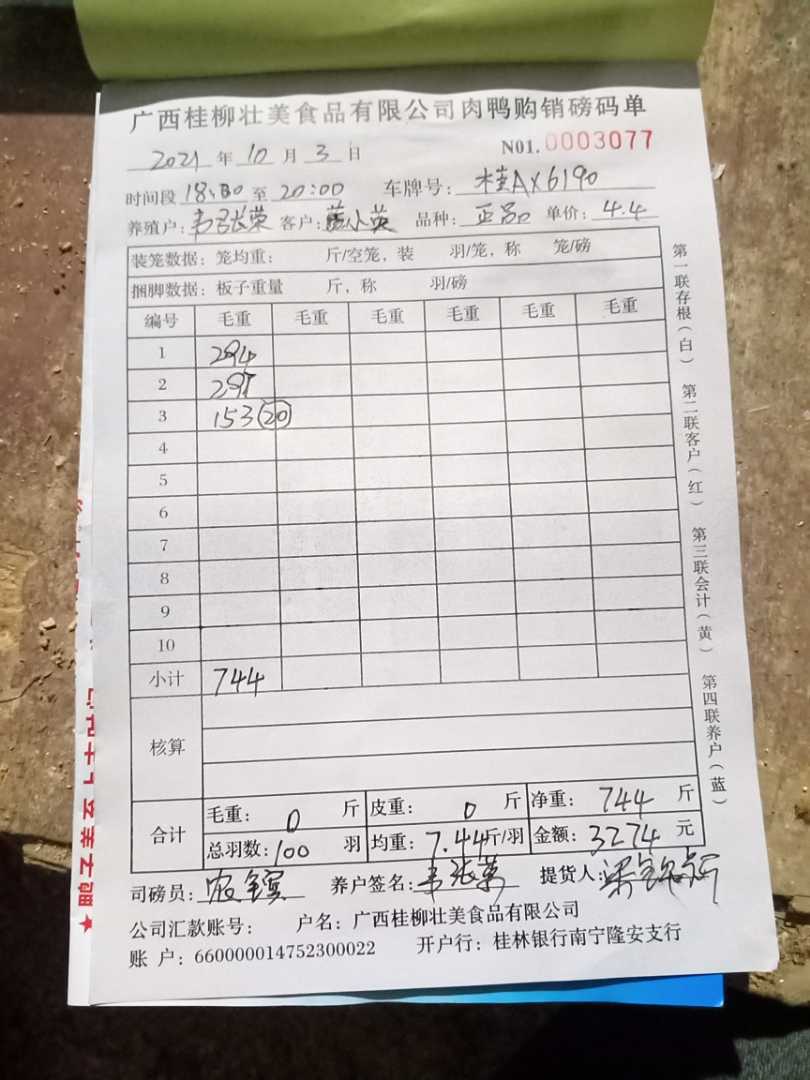 广西桂柳壮美食品有限公司肉鸭购销磅码单
2021 年 10 月 3 日 N01.0003077
时间段 18:00 至 20:00 车牌号: 桂AX6190
养殖户: 韦张荣 客户: 蓝小英 品种: 正品 单价: 4.4
装笼数据: 笼均重: 斤/空笼, 装 羽/笼, 称 笼/磅
捆脚数据: 板子重量 斤, 称 羽/磅
编号 毛重 毛重 毛重 毛重 毛重 毛重
1 294
2 297
3 153 20
4
5
6
7
8
9
10
小计 744
核算
合计 毛重: 0 斤 皮重: 0 斤 净重: 744 斤
总羽数: 100 羽 均重: 7.44斤/羽 金额: 3274 元
司磅员: 养户签名: 韦张荣 提货人:
公司汇款账号: 户名: 广西桂柳壮美食品有限公司
账 户: 660000014752300022 开户行: 桂林银行南宁隆安支行
第一联存根(白) 第二联客户(红) 第三联会计(黄) 第四联养户(蓝)